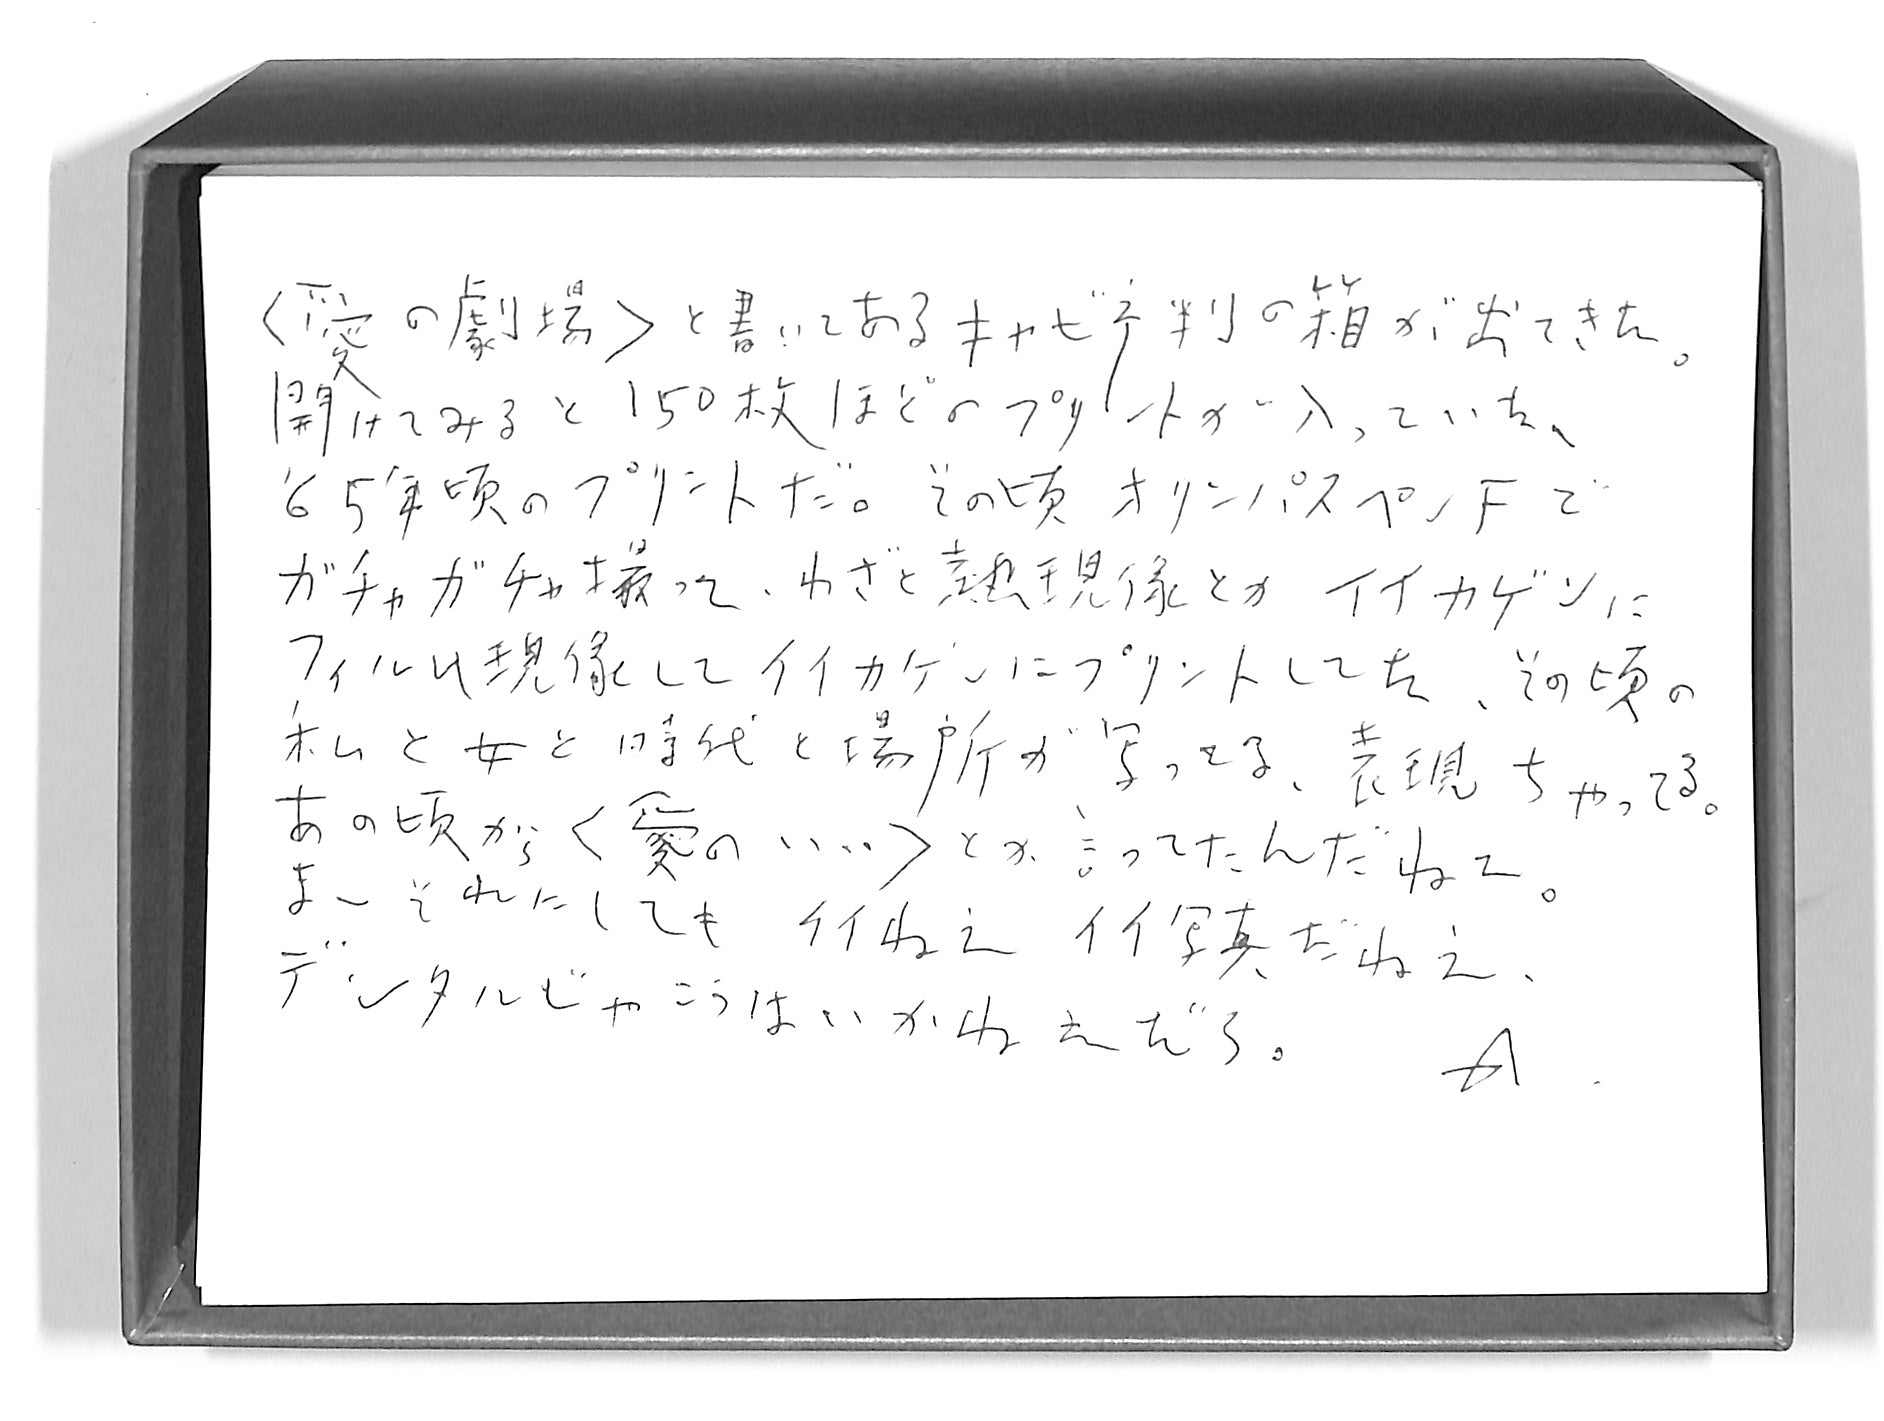 〈愛の劇場〉と書いてあるキャビネ判の箱が出てきた。
開けてみると150枚ほどのプリントが入っていた、
'65年頃のプリントだ。その頃オリンパスペンFで
ガチャガチャ撮って、わざと熱現像とかイイカゲンに
フィルム現像してイイカゲンにプリントしてた、その頃の
私と女と時代と場所が写ってる、表現ちゃってる。
あの頃から〈愛の、、、、〉とか言ってたんだねぇ。
ま〜それにしてもイイねえイイ写真だねえ、
デジタルじゃこうはいかねえだろ。
A.